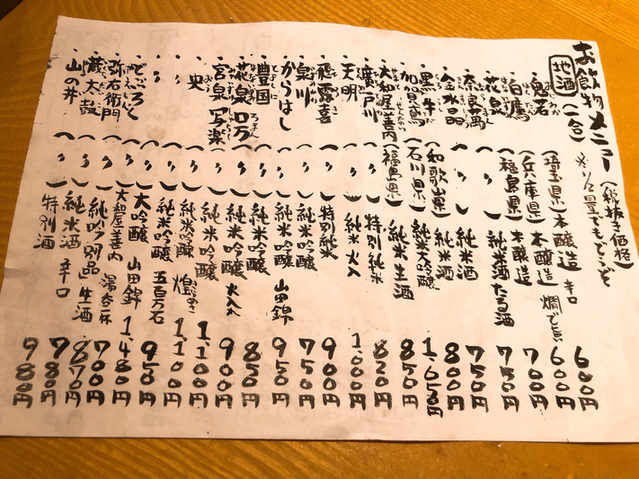 お飲物メニュー(税抜き価格)
地酒(一合)※ソノ量でもどうぞ
・鬼若(埼玉県)本醸造 辛口 600円
・白鷹(兵庫県)本醸造 燗で 600円
・花泉(福島県)本醸造 700円
・奈良萬(〃)純米酒たる酒 750円
・金水晶(〃)純米酒 750円
・黒牛(和歌山県)純米酒 800円
・加賀鳶(石川県)純米大吟醸 1,650円
・大和屋善内(福島県)純米生酒 850円
・廣戸川(〃)特別純米 820円
・天明(〃)純米 火入 1,000円
・飛露喜(〃)特別純米 900円
・泉川(〃)純米吟醸 750円
・からはし(〃)純米吟醸 山田錦 950円
・豊国(〃)純米吟醸 850円
・花泉ロ万(〃)純米吟醸 火入れ 900円
・宮泉 写楽(〃)純米吟醸 1,100円
・央(〃)純米吟醸 煌 1,100円
(〃)純米吟醸 五百万石 950円
・どぶろく(〃)大吟醸 山田錦 1,480円
・弥右衛門(〃)大和屋善内 湯呑一杯 700円
・蔵太鼓(〃)純吟別品 生酒 870円
・山の井(〃)純米酒 辛口 780円
特別酒 980円